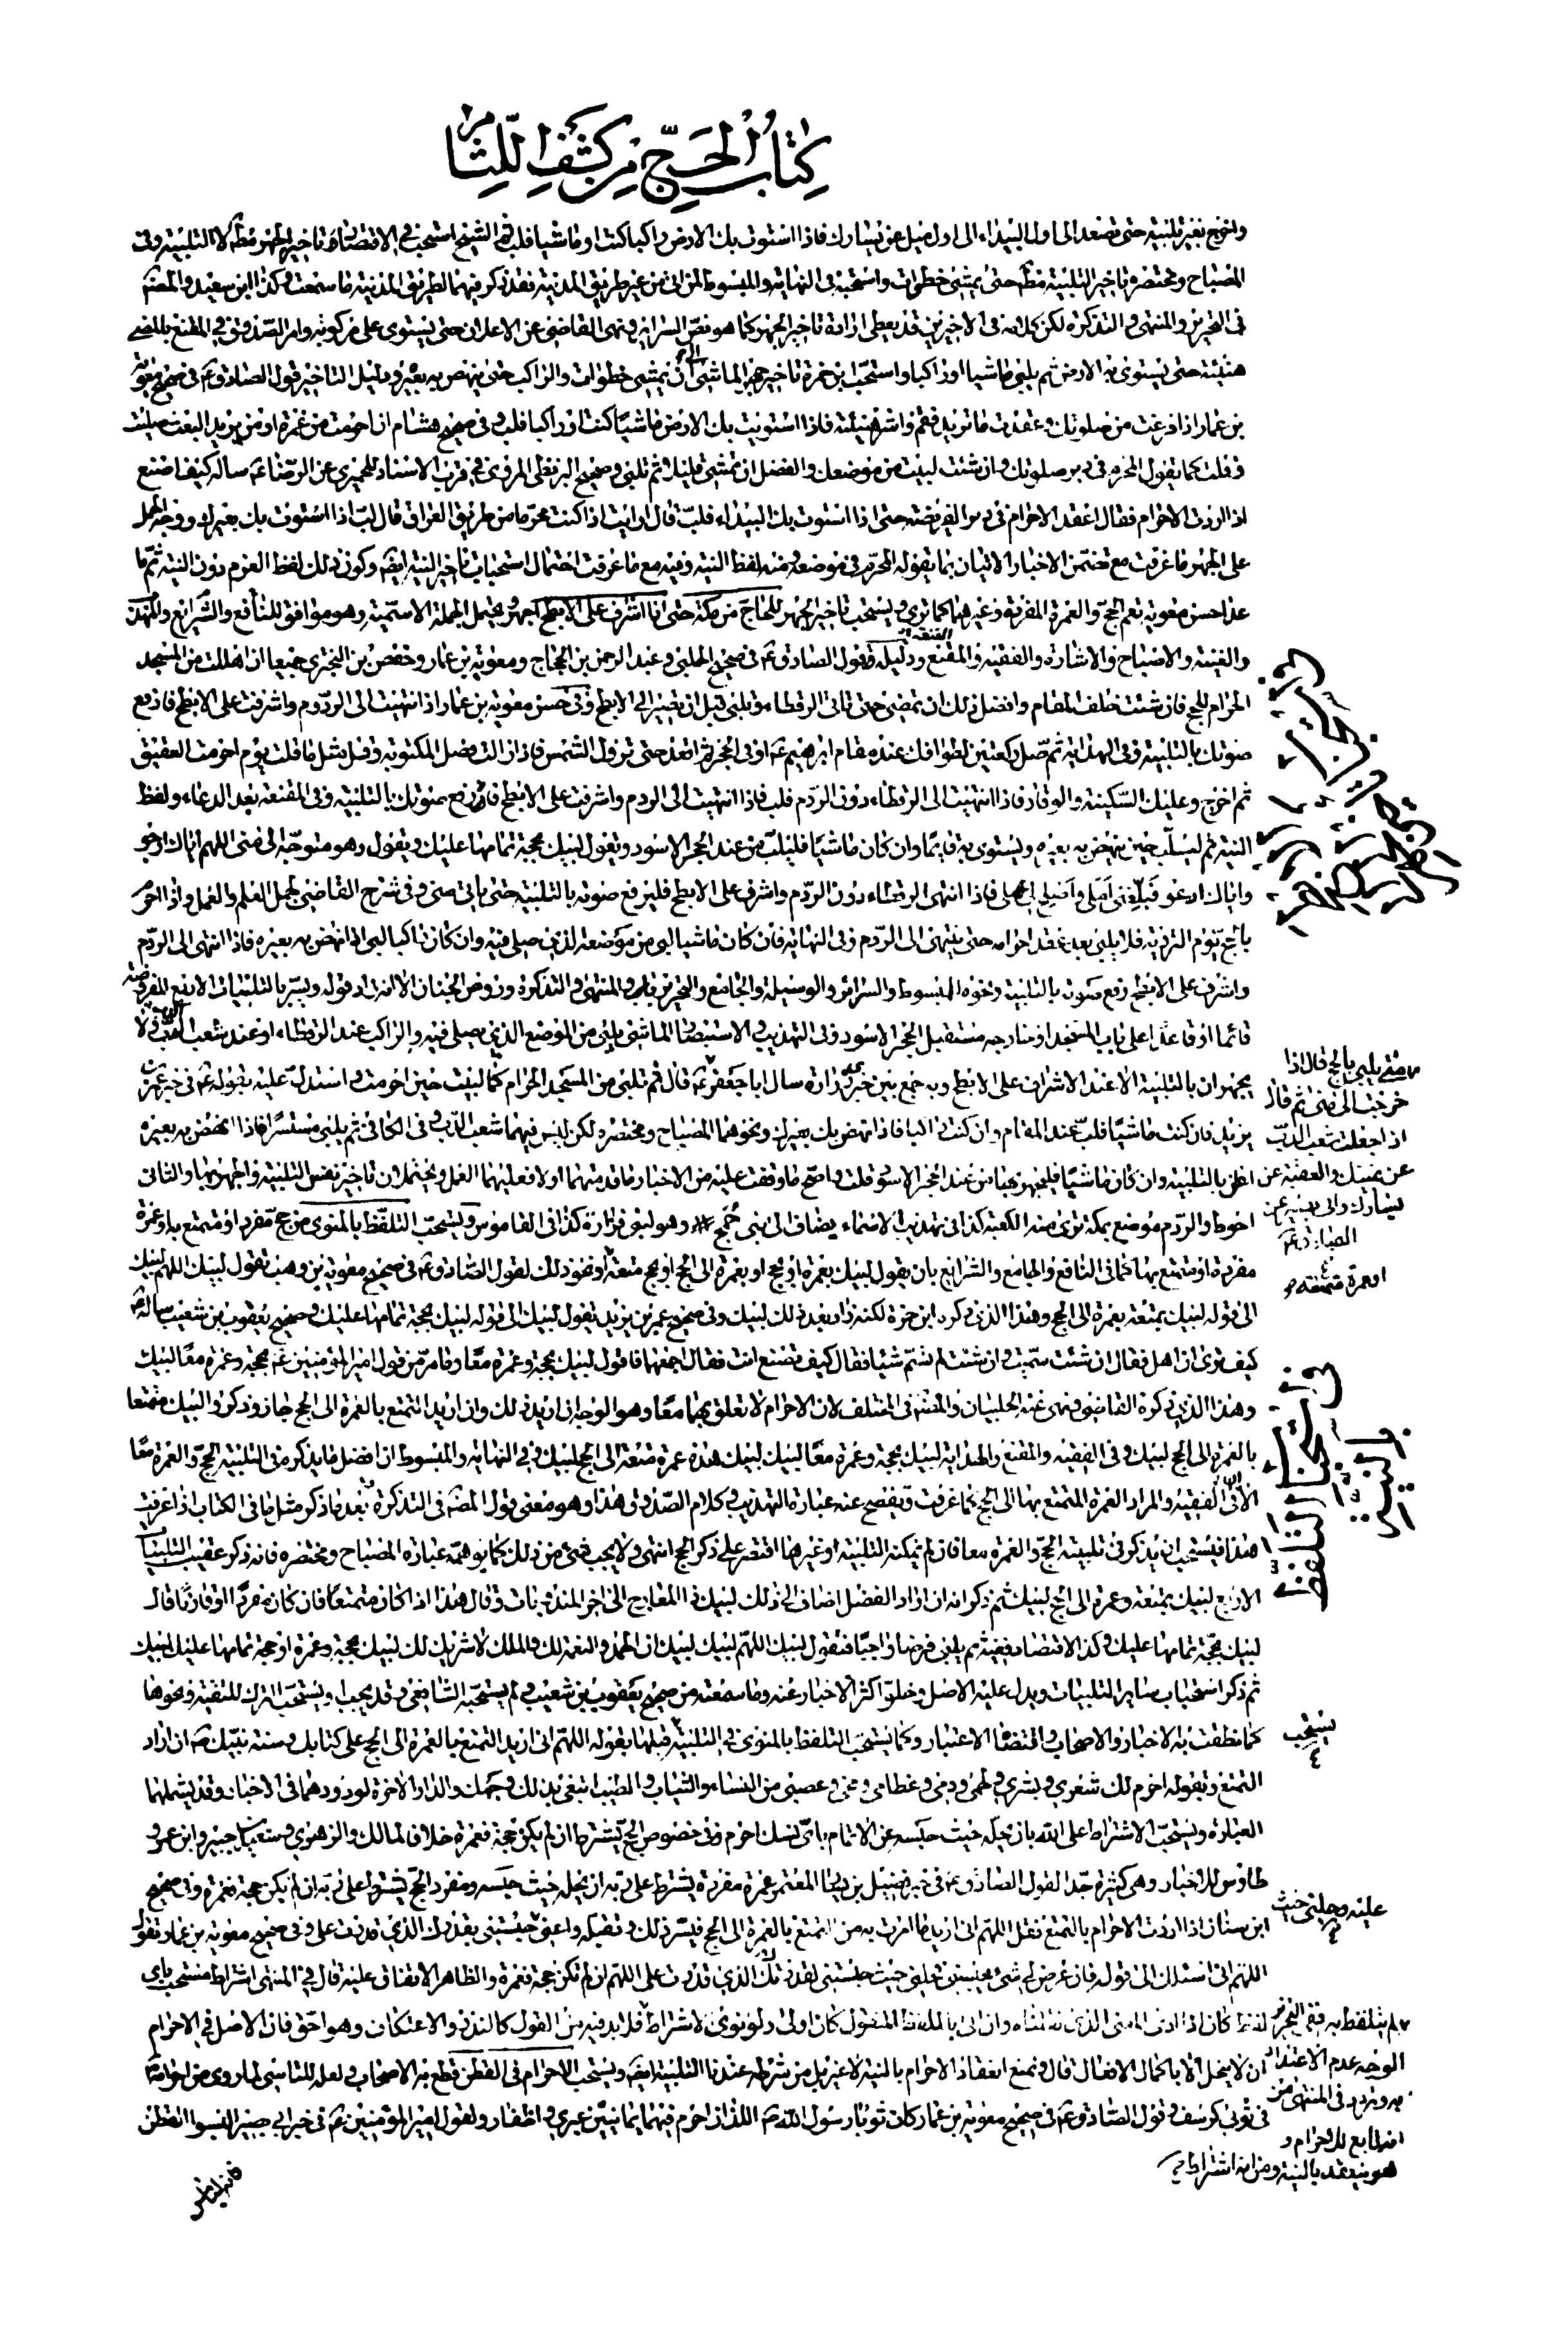 كتاب الحج من كشف اللثام
واخرج بغير تلبية حتى تصعد الى اول البيداء الى اول ميل عن يسارك فاذا استوت بك الارض راكبا كنت او ماشيا فلب ثم الشيخ استحب في الاقتصاد تاخير الجهر مط كالتلبية وفى
المصباح ومختصره تاخير التلبية مط حتى يمشى خطوات واستحبه فى النهاية والمبسوط لمن اتى من غير طريق المدينة فقد ذكر فيهما لطريق المدينة ما سمعت وكذا ابن سعيد والمصنف
فى التحرير والمنتهى والتذكرة لكن كلامه فى الاخيرين قد يعطى ارادة تاخير الجهر كما هو نص السرائر ونهى القاضى عن الاعلان حتى يستوى على مركوبه وامر الصدوق فى المقنع بالمضى
هنيئة حتى يستوى به الارض ثم يلبى ماشيا او راكبا واستحب ابن حمزة تاخير جهر الماشى الى ان يمشى خطوات والراكب حتى ينهض به بعيره ودليل التاخير قول الصادق ع فى صحيح معوية
بن عمار اذا فرغت من صلوتك وعقدت ما تريد فقم وامش هنيئة فاذا استويت بك الارض ماشيا كنت او راكبا فلب وفى صحيح هشام ان احرمت من غمرة او من بريد البعث صليت
وقلت كما يقول المحرم فى دبر صلوتك وان شئت لبيت من موضعك والفضل ان تمشى قليلا ثم تلبى وصحيح البزنطى المروى فى قرب الاسناد للحميرى عن الرضا ع ساله كيف اصنع
اذا اردت الاحرام فقال اعقد الاحرام فى دبر الفريضة حتى اذا استوت بك البيداء فلب قال ارايت اذا كنت محرما من طريق العراق قال لب اذا استوت بك بعيرك ووجه الحمل
على الجهر ما عرفت مع تضمن الاخبار الاتيان بما يقوله المحرم فى موضعه ومنه لفظ النية وفيه مع ما عرفت احتمال استحباب تاخير النية ايضا وكون ذلك لفظ العزم دون النية ثم ما
عدا حسن معوية تعم الحج والعمرة المفردة وغيرهما كما ترى ويستحب تاخير الجهر للحاج من مكة حتى اذا اشرف على الابطح اجهر ويحتمل الجملة الاسمية وهو موافق للنافع والشرايع والمهذب
والغنية والاصباح والاشارة والفقيه والمقنع ودليله قول الصادق ع فى صحيح الحلبى وعبد الرحمن بن الحجاج ومعوية بن عمار وحفص بن البخترى جميعا ان اهللت من المسجد
الحرام للحج فان شئت خلف المقام وافضل ذلك ان تمضى حتى تاتى الرقطاء وتلبى قبل ان تصير الى الابطح وفى حسن معوية بن عمار اذا انتهيت الى الردم واشرفت على الابطح فارفع
صوتك بالتلبية وفى الهداية ثم صل ركعتين لطوافك عند مقام ابرهيم ع او فى الحجر ثم اقعد حتى تزول الشمس فاذا زالت فصل المكتوبة وقل مثل ما قلت يوم احرمت العقيق
ثم اخرج وعليك السكينة والوقار فاذا انتهيت الى الرقطاء دون الردم فلب فاذا انتهيت الى الردم واشرفت على الابطح فارفع صوتك بالتلبية وفى المقنعة بعد الدعاء ولفظ
النية ثم ليلب حين ينهض به بعيره ويستوى به قائما وان كان ماشيا فليلب من عند الحجر الاسود ويقول لبيك بحجة تمامها عليك ويقول وهو متوجه الى منى اللهم اياك ارجو
واياك ادعو فبلغنى املى واصلح لى عملى فاذا انتهى الى الرقطاء دون الردم واشرف على الابطح فليرفع صوته بالتلبية حتى ياتى منى وفى شرح القاضى لجمل العلم والعمل واذا احرم
بالحج يوم التروية فلا يلبى بعد عقد احرامه حتى ينتهى الى الردم وفى النهاية فان كان ماشيا لبى من موضعه الذى صلى فيه وان كان راكبا لبى اذا نهض به بعيره فاذا انتهى الى الردم
واشرف على الابطح رفع صوته بالتلبية ونحوه المبسوط والسرائر والوسيلة والجامع والتحرير والمنتهى والتذكرة وروض الجنان الا انه زاد قوله ويسر بالتلبيات الاربع المفروضة
قائما او قاعدا على باب المسجد او خارجه مستقبل الحجر الاسود وفى التهذيب والاستبصار الماشى يلبى من الموضع الذى يصلى فيه والراكب عند الرقطاء او عند شعب الدب ولا
يجهران بالتلبية الا عند الاشراف على الابطح وبه جمع بين خبر زرارة سال ابا جعفر ع قال فمتى تلبى من المسجد الحرام كما لبيت حين احرمت واستدل عليه بقوله ع فى خبر عمر بن
يزيد فان كنت ماشيا فلب عند المقام وان كنت راكبا فاذا نهض بك بعيرك ونحوهما المصباح ومختصره لكن ليس فيهما شعب الدب وفى الكافى ثم يلبى مستسرا فاذا نهض به بعيره
اعلن بالتلبية وان كان ماشيا فليجهر بها من عند الحجر الاسود قلت واصح ما وقفت عليه من الاخبار ما قدمتهما اولا فعليهما العمل ويحتملان تاخير نفس التلبية والجهر بها والثانى
احوط والردم موضع بمكة ترى منه الكعبة كذا فى تهذيب الاسماء يضاف الى بنى جمح وهو لبنى قرارة كذا فى القاموس ويستحب التلفظ بالمنوى من حج مفرد او متمتع به او عمرة
مفردة او متمتع بها كما فى النافع والجامع والشرايع بان يقول لبيك بعمرة او بحج او بعمرة الى الحج او بحج متعة او نحو ذلك لقول الصادق ع فى صحيح معوية بن وهب تقول لبيك اللهم لبيك
الى قوله لبيك بمتعة بعمرة الى الحج وهذا الذى ذكره ابن حمزة لكنه زاد بعد ذلك لبيك وفى صحيح عمر بن يزيد تقول لبيك الى قوله لبيك بحجة تمامها عليك وصحيح يعقوب بن شعيب ساله ع
كيف ترى ان اهل فقال ان شئت سميت وان شئت لم تسم شيئا فقال كيف تصنع انت فقال اجمعهما فاقول لبيك بحجة وعمرة معا وما مر من قول امير المؤمنين ع بحجة وعمرة معا لبيك
وهذا الذى ذكره القاضى ونهى عنه الحلبيان والمصنف فى المختلف لان الاحرام لا تعلق بهما معا وهو الوجه ان اريد ذلك وان اريد التمتع بالعمرة الى الحج جاز وذكروا لبيك متمتعا
بالعمرة الى الحج لبيك وفى الفقيه والمقنع والهداية لبيك بحجة وعمرة معا لبيك لبيك هذه عمرة متعة الى الحج لبيك وفى النهاية والمبسوط ان افضل ما يذكره فى التلبية الحج والعمرة معا
الا فى الفقيه والمراد العمرة المتمتع بها الى الحج كما عرفت ويفصح عنه عبارة التهذيب وكلام الصدوق هذا وهو معنى قول المصنف فى التذكرة بعد ما ذكر مثل ما فى الكتاب اذا عرفت
هذا فيستحب ان يذكر فى تلبيته الحج والعمرة معا فان لم يمكنه للتقية او غيرها اقتصر على ذكر الحج انتهى ولا يجب شئ من ذلك كما يوهمه عبارة المصباح ومختصره فانه ذكر عقيب التلبيات
الاربع لبيك بمتعة وعمرة الى الحج لبيك ثم ذكر انه ان اراد الفضل اضاف الى ذلك لبيك ذا المعارج الى اخر المندوبات وقال هذا اذا كان متمتعا فان كان مفردا او قارنا قال
لبيك بحجة تمامها عليك وكذا الاقتصاد ففيه ثم يلبى فرضا واجبا فتقول لبيك اللهم لبيك لبيك ان الحمد والنعمة لك والملك لا شريك لك لبيك بحجة وعمرة او حجة تمامها عليك لبيك
ثم ذكر استحباب سائر التلبيات ويدل عليه الاصل وخلو اكثر الاخبار عنه وما سمعته من صحيح يعقوب بن شعيب ولم يستحبه الشافعى وقد يجب ويستحب الترك للتقية ونحوها
كما نطقت به الاخبار والاصحاب واقتضاه الاعتبار وكما يستحب التلفظ بالمنوى فى التلبية قبلها بقوله اللهم انى اريد التمتع بالعمرة الى الحج على كتابك وسنة نبيك ص ان اراد
التمتع وبقوله احرم لك شعرى وبشرى ولحمى ودمى وعظامى ومخى وعصبى من النساء والثياب والطيب ابتغى بذلك وجهك والدار الاخرة لورودهما فى الاخبار وقد يشملهما
العبارة ويستحب الاشتراط على الله بان يحله حيث حبسه عن الاتمام باى نسك احرم وفى خصوص الحج يشترط ان لم يكن حجة فعمرة خلافا لمالك والزهرى وسعيد بن جبير وابن عمر و
طاوس للاخبار وهى كثيرة جدا لقول الصادق ع فى خبر فضيل بن يسار المعتمر عمرة مفردة يشترط على ربه ان يحله حيث حبسه ومفرد الحج يشترط على ربه ان لم يكن حجة فعمرة وفى صحيح
ابن سنان اذا اردت الاحرام بالتمتع فقل اللهم انى اريد ما امرت به من التمتع بالعمرة الى الحج فيسر ذلك لى وتقبله واعنى حبستنى بقدرك الذى قدرت على وفى صحيح معوية بن عمار تقول
اللهم انى اسئلك الى قوله فان عرض لى شئ يحبسنى فحلنى حيث حبستنى لقدرك الذى قدرت على اللهم ان لم تكن حجة فعمرة والظاهر الاتفاق عليه قال فى المنتهى اشتراط مستحب باى
لفظ كان اذا ادى المعنى الذى نقلناه وان اتى باللفظ المنقول كان اولى ولو نوى الاشتراط فلا بد فيه من القول كالنذر والاعتكاف وهو احق فان الاصل فى الاحرام
ان لا يحل الا باكمال الافعال قال ونمنع انعقاد الاحرام بالنية لا غير بل من شرطه عندنا التلبية ايضا ويستحب الاحرام فى القطن قطع به الاصحاب ولعله للتاسى لما روى من احرامه ص
فى ثوبى كرسف وقول الصادق ع فى صحيح معوية بن عمار كان ثوبا رسول الله ص اللذان احرم فيهما يمانيين عبرى واظفار ولقول امير المؤمنين ع فى خبر ابى بصير البسوا القطن
متى يلبى بالحج قال اذا
خرجت الى منى ثم قال
اذا جعلت شعب الدب
عن يمينك والعقبة عن
يسارك
الصادق ع
او عمرة متمتعة
يستحب
عليه وحلنى حيث
لم يتلفظ به ففى التحرير
الوجه عدم الاعتداد
به وتردد فى المنتهى من
انه تابع للاحرام و
هو ينعقد بالنية ومن انه اشتراط